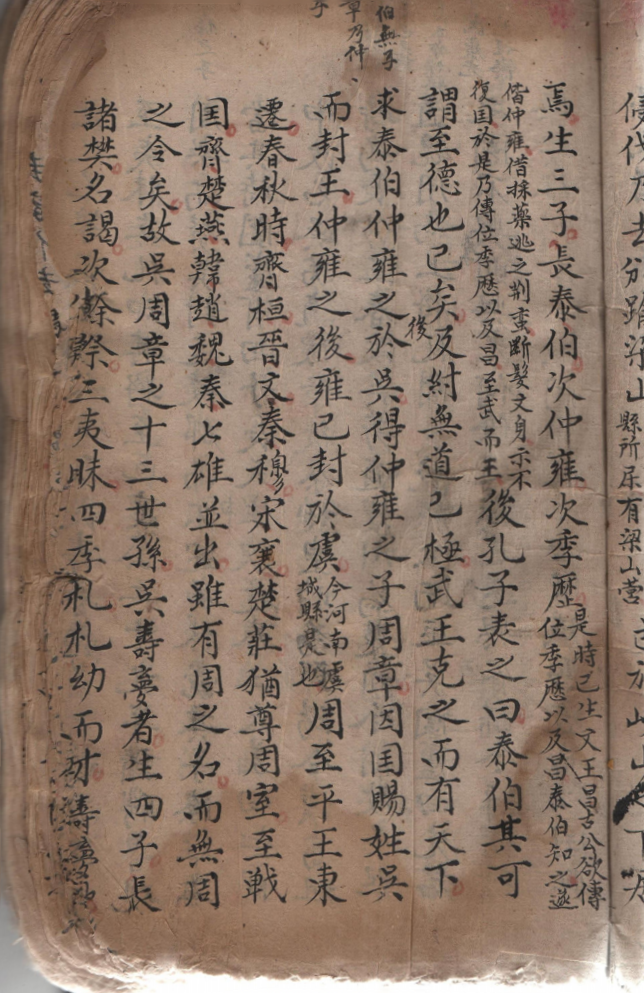 侵代乃去分踰梁山縣所居有梁山營
焉生三子長泰伯次仲雍次季歷是時已生文王昌古公欲傳位季歷以及昌泰伯知之遂
偕仲雍借採藥逃之荆蛮断髪文身示不復囯於是乃傳位季歷以及昌至武而王後孔子表之曰泰伯其可
謂至德也已矣及後紂無道已極武王克之而有天下
求泰伯仲雍之於吳得仲雍之子周章因囯賜姓吳
伯無子
章乃仲
子
而封王仲雍之後雍已封於虞今河南虞城縣是也周至平王東
遷春秋時齊桓晉文秦穆宋襄楚莊猶尊周室至戰
囯齊楚燕韓趙魏秦七雄並出雖有周之名而無周
之令矣故吳周章之十三世孫吳壽夢者生四子長
諸樊名謁次餘祭三夷昧四季札札幼而才壽夢